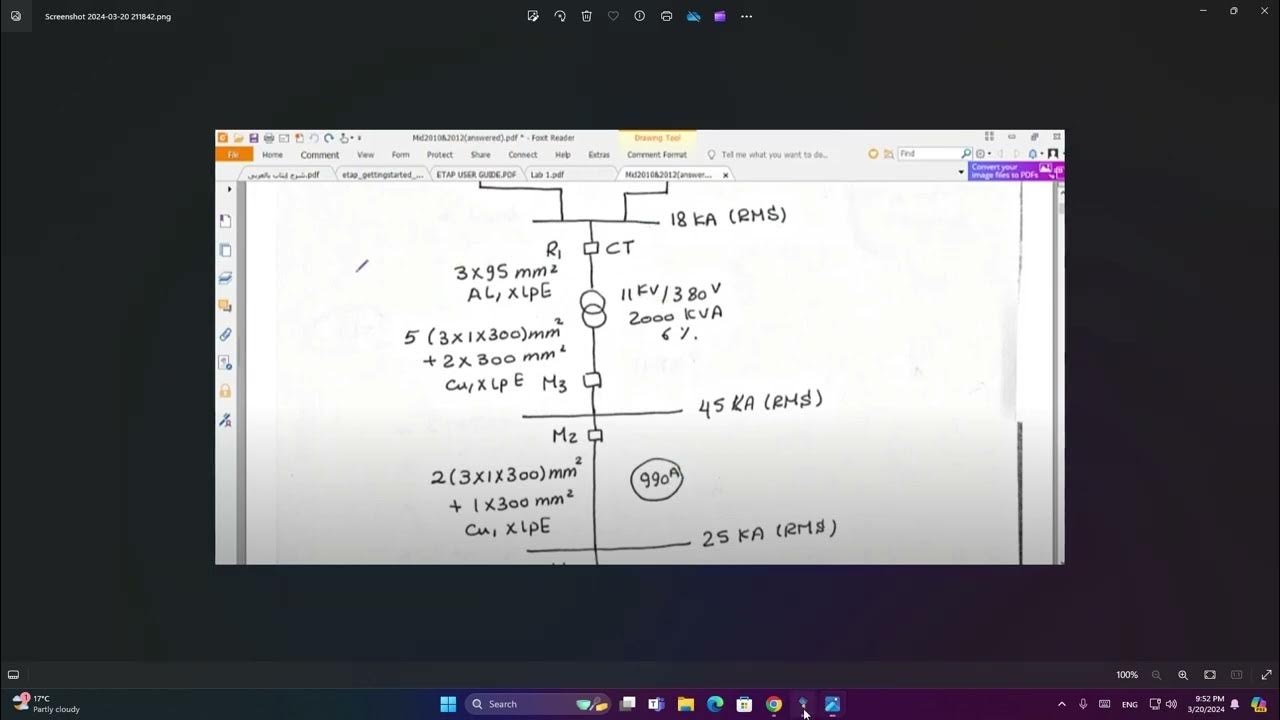 Screenshot 2024-03-20 211842.png
Mid2010&2012(answered).pdf * - Foxit Reader
Drawing Tool
File Home Comment View Form Protect Share Connect Help Extras Comment Format Tell me what you want to do... Find
شرح كتاب بالعربي.pdf etap_gettingstarted_... ETAP USER GUIDE.PDF Lab 1.pdf Mid2010&2012(answer...
Convert your
image files to PDFs
18 KA (RMS)
R1 CT
3x95 mm²
AL, XLPE
11 KV/380 V
2000 KVA
6 %.
5 (3x1x300)mm²
+ 2x300 mm²
Cu, XLPE M3
45 KA (RMS)
M2
2(3x1x300)mm²
+ 1x300 mm²
Cu, XLPE
990A
25 KA (RMS)
100%
1
17°C
Partly cloudy
Search
ENG
9:52 PM
3/20/2024